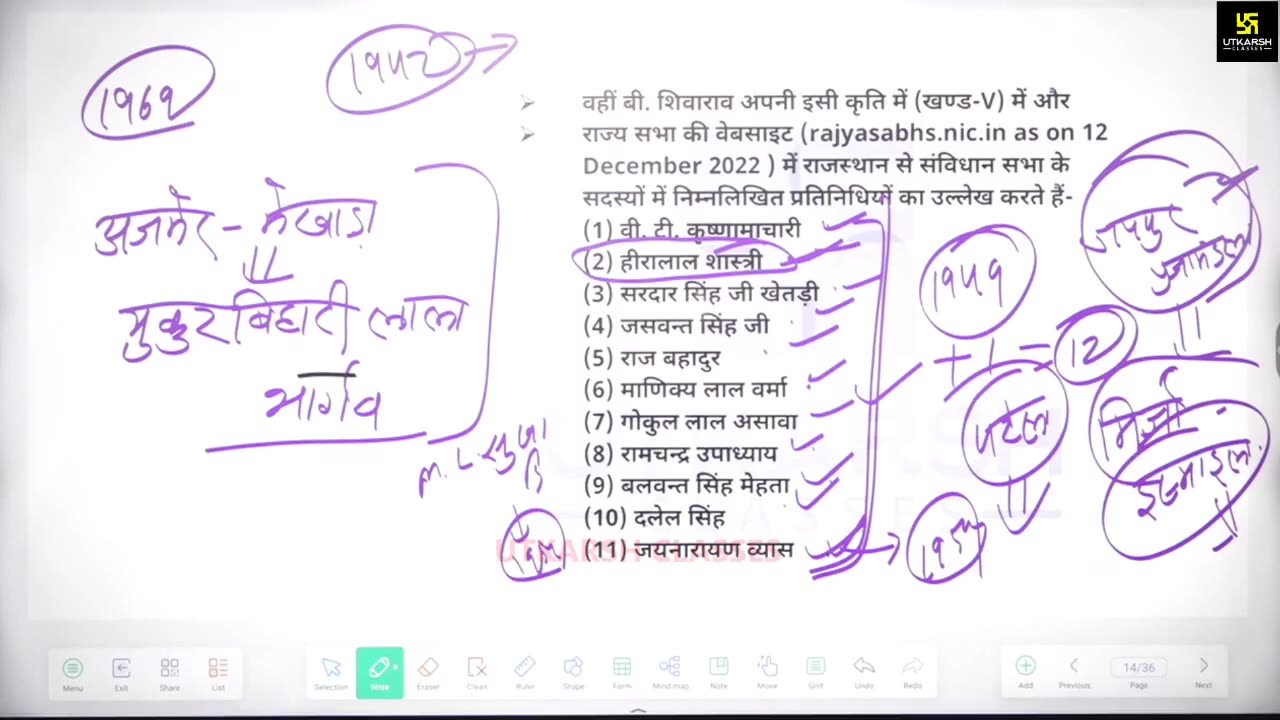 UTKARSH
CLASSES
१९५२
१९६१
वहीं बी. शिवाराव अपनी इसी कृति में (खण्ड-V) में और
राज्य सभा की वेबसाइट (rajyasabhs.nic.in as on 12
December 2022 ) में राजस्थान से संविधान सभा के
सदस्यों में निम्नलिखित प्रतिनिधियों का उल्लेख करते हैं-
(1) वी. टी. कृष्णामाचारी
(2) हीरालाल शास्त्री
(3) सरदार सिंह जी खेतड़ी
(4) जसवन्त सिंह जी
(5) राज बहादुर
(6) माणिक्य लाल वर्मा
(7) गोकुल लाल असावा
(8) रामचन्द्र उपाध्याय
(9) बलवन्त सिंह मेहता
(10) दलेल सिंह
(11) जयनारायण व्यास
अजमेर -
मुकुट बिहारी लाल
भार्गव
जयपुर
प्रजामंडल
+1 = 12
पटेल
मिर्जा
इस्माइल
UTKARSH CLASSES
Menu
Exit
Share
List
Selection
Write
Eraser
Clean
Ruler
Shape
Form
Mind map
Note
Move
Grid
Undo
Redo
Add
Previous
14/36
Page
Next